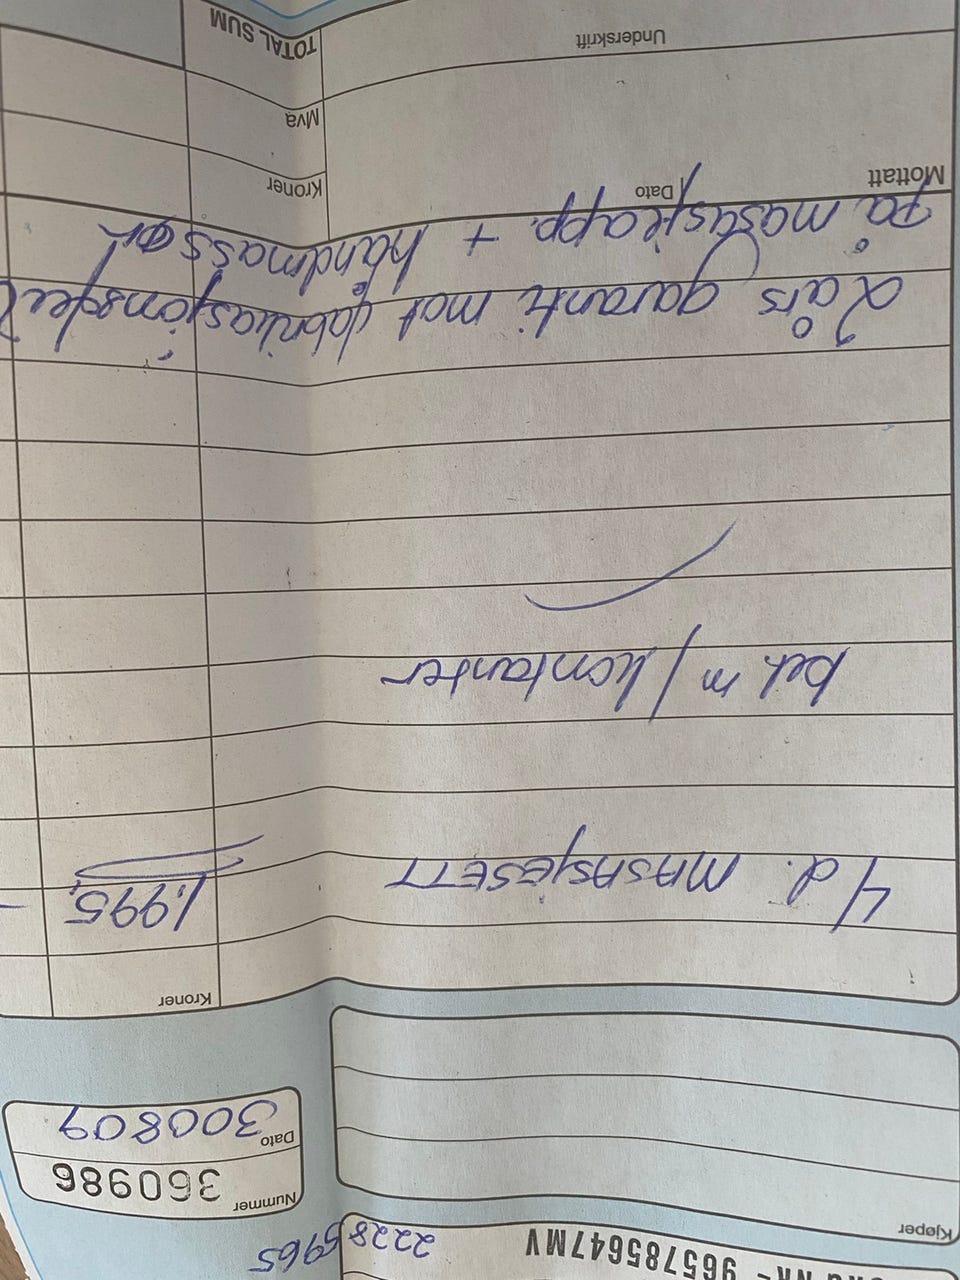 NR- 965785647MV 2228 5965
Kjøper
Nummer 360986
Dato 300809
Kroner
4 d. MASASJESETT 1.995,-
bet m/kontanter
2 års garanti mot fabrikasjonsfeil
på masasjeapp. + håndmassør
Mottatt Dato Kroner
Mva
Underskrift TOTAL SUM